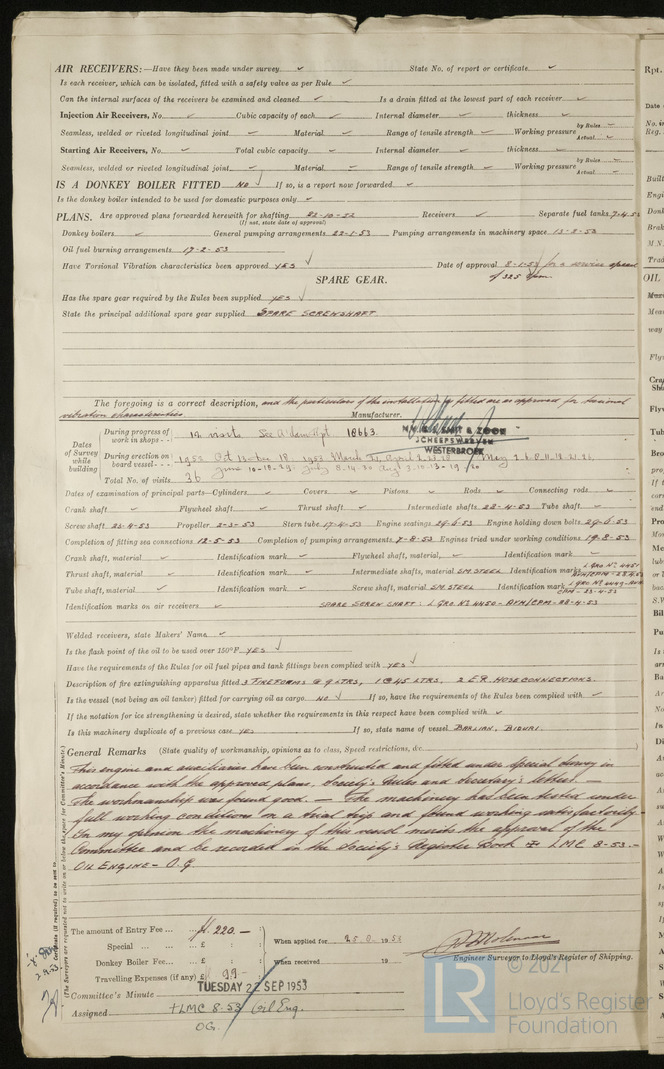 AIR RECEIVERS:—Have they been made under survey ✓ State No. of report or certificate ✓
Is each receiver, which can be isolated, fitted with a safety valve as per Rule ✓
Can the internal surfaces of the receivers be examined and cleaned ✓ Is a drain fitted at the lowest part of each receiver ✓
Injection Air Receivers, No. ✓ Cubic capacity of each ✓ Internal diameter ✓ thickness ✓
Seamless, welded or riveted longitudinal joint ✓ Material ✓ Range of tensile strength ✓ Working pressure by Rules ✓ Actual ✓
Starting Air Receivers, No. ✓ Total cubic capacity ✓ Internal diameter ✓ thickness ✓
Seamless, welded or riveted longitudinal joint ✓ Material ✓ Range of tensile strength ✓ Working pressure by Rules ✓ Actual ✓
IS A DONKEY BOILER FITTED NO ✓ If so, is a report now forwarded ✓
Is the donkey boiler intended to be used for domestic purposes only ✓
PLANS. Are approved plans forwarded herewith for shafting 22-10-52 Receivers ✓ Separate fuel tanks 7-4-52
(If not, state date of approval)
Donkey boilers ✓ General pumping arrangements 22-1-53 Pumping arrangements in machinery space 13-2-53
Oil fuel burning arrangements 17-2-53
Have Torsional Vibration characteristics been approved YES ✓ Date of approval 8-1-53 for a service speed
of 325 rpm.
SPARE GEAR.
Has the spare gear required by the Rules been supplied YES ✓
State the principal additional spare gear supplied SPARE SCREWSHAFT
The foregoing is a correct description, and the particulars of the installation as fitted are as approved for torsional
vibration characteristics. Manufacturer.
SMIT & ZOON
SCHEEPSWERVEN
WESTERBROEK
Dates of Survey while building
During progress of work in shops - - 12 visits See A'dam Rpt. 18663
During erection on board vessel - - -
Total No. of visits 36
Dates of examination of principal parts—Cylinders ✓ Covers ✓ Pistons ✓ Rods ✓ Connecting rods ✓
Crank shaft ✓ Flywheel shaft ✓ Thrust shaft ✓ Intermediate shafts 22-4-53 Tube shaft ✓
Screw shaft 23-4-53 Propeller 2-3-53 Stern tube 17-4-53 Engine seatings 29-6-53 Engine holding down bolts 29-6-53
Completion of fitting sea connections 12-5-53 Completion of pumping arrangements 7-8-53 Engines tried under working conditions 19-8-53
Crank shaft, material ✓ Identification mark ✓ Flywheel shaft, material, ✓ Identification mark ✓
Thrust shaft, material ✓ Identification mark ✓ Intermediate shafts, material SM. STEEL Identification marks L GRO No. 4451
Tube shaft, material ✓ Identification mark ✓ Screw shaft, material SM. STEEL Identification mark L GRO No. 4449
CPM - 23-4-53
Identification marks on air receivers ✓ SPARE SCREW SHAFT: L GRO No 4450 - AVM/CPM - 22-4-53
Welded receivers, state Makers' Name ✓
Is the flash point of the oil to be used over 150°F. YES ✓
Have the requirements of the Rules for oil fuel pipes and tank fittings been complied with YES ✓
Description of fire extinguishing apparatus fitted 3 FIREFOAMS @ 9 LTRS, 1 @ 45 LTRS, 2 E.R. HOSECONNECTIONS.
Is the vessel (not being an oil tanker) fitted for carrying oil as cargo NO ✓ If so, have the requirements of the Rules been complied with ✓
If the notation for ice strengthening is desired, state whether the requirements in this respect have been complied with ✓
Is this machinery duplicate of a previous case YES If so, state name of vessel BARLIAN, BIDURI.
General Remarks (State quality of workmanship, opinions as to class, Speed restrictions, &c.)
This engine and auxiliaries have been constructed and fitted under special survey in
accordance with the approved plans, Society's Rules and Secretary's letters. —
The workmanship was found good. — The machinery has been tested under
full working conditions on a trial trip and found working satisfactorily.—
In my opinion the machinery of this vessel merits the approval of the
Committee and be recorded in the Society's Register Book LMC 8-53.—
OIL ENGINE - O.G.
The amount of Entry Fee ... ... fl. 220.—
Special ... ... ... £ : :
Donkey Boiler Fee... £ : :
Travelling Expenses (if any) £ 99.—
When applied for 19
When received 19
Engineer Surveyor to Lloyd's Register of Shipping.
TUESDAY 22 SEP 1953
Committee's Minute
Assigned +LMC 8.53 Oil Eng.
OG.
(The Surveyors are requested not to write on or below the space for Committee's Minute.)
© 2021
Lloyd's Register
Foundation
LR